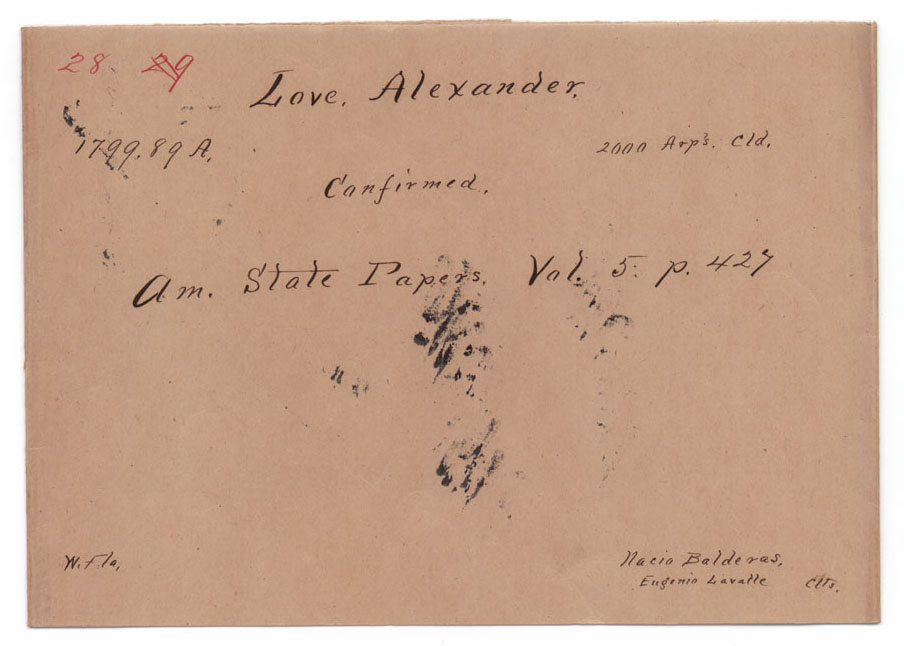 28 29
Love, Alexander.
1799.89 A.
2000 Arp's. Cld.
Confirmed.
Am. State Papers. Vol. 5. p. 427
W. Fla.
Nacio Balderas,
Eugenio Lavalle Clts.